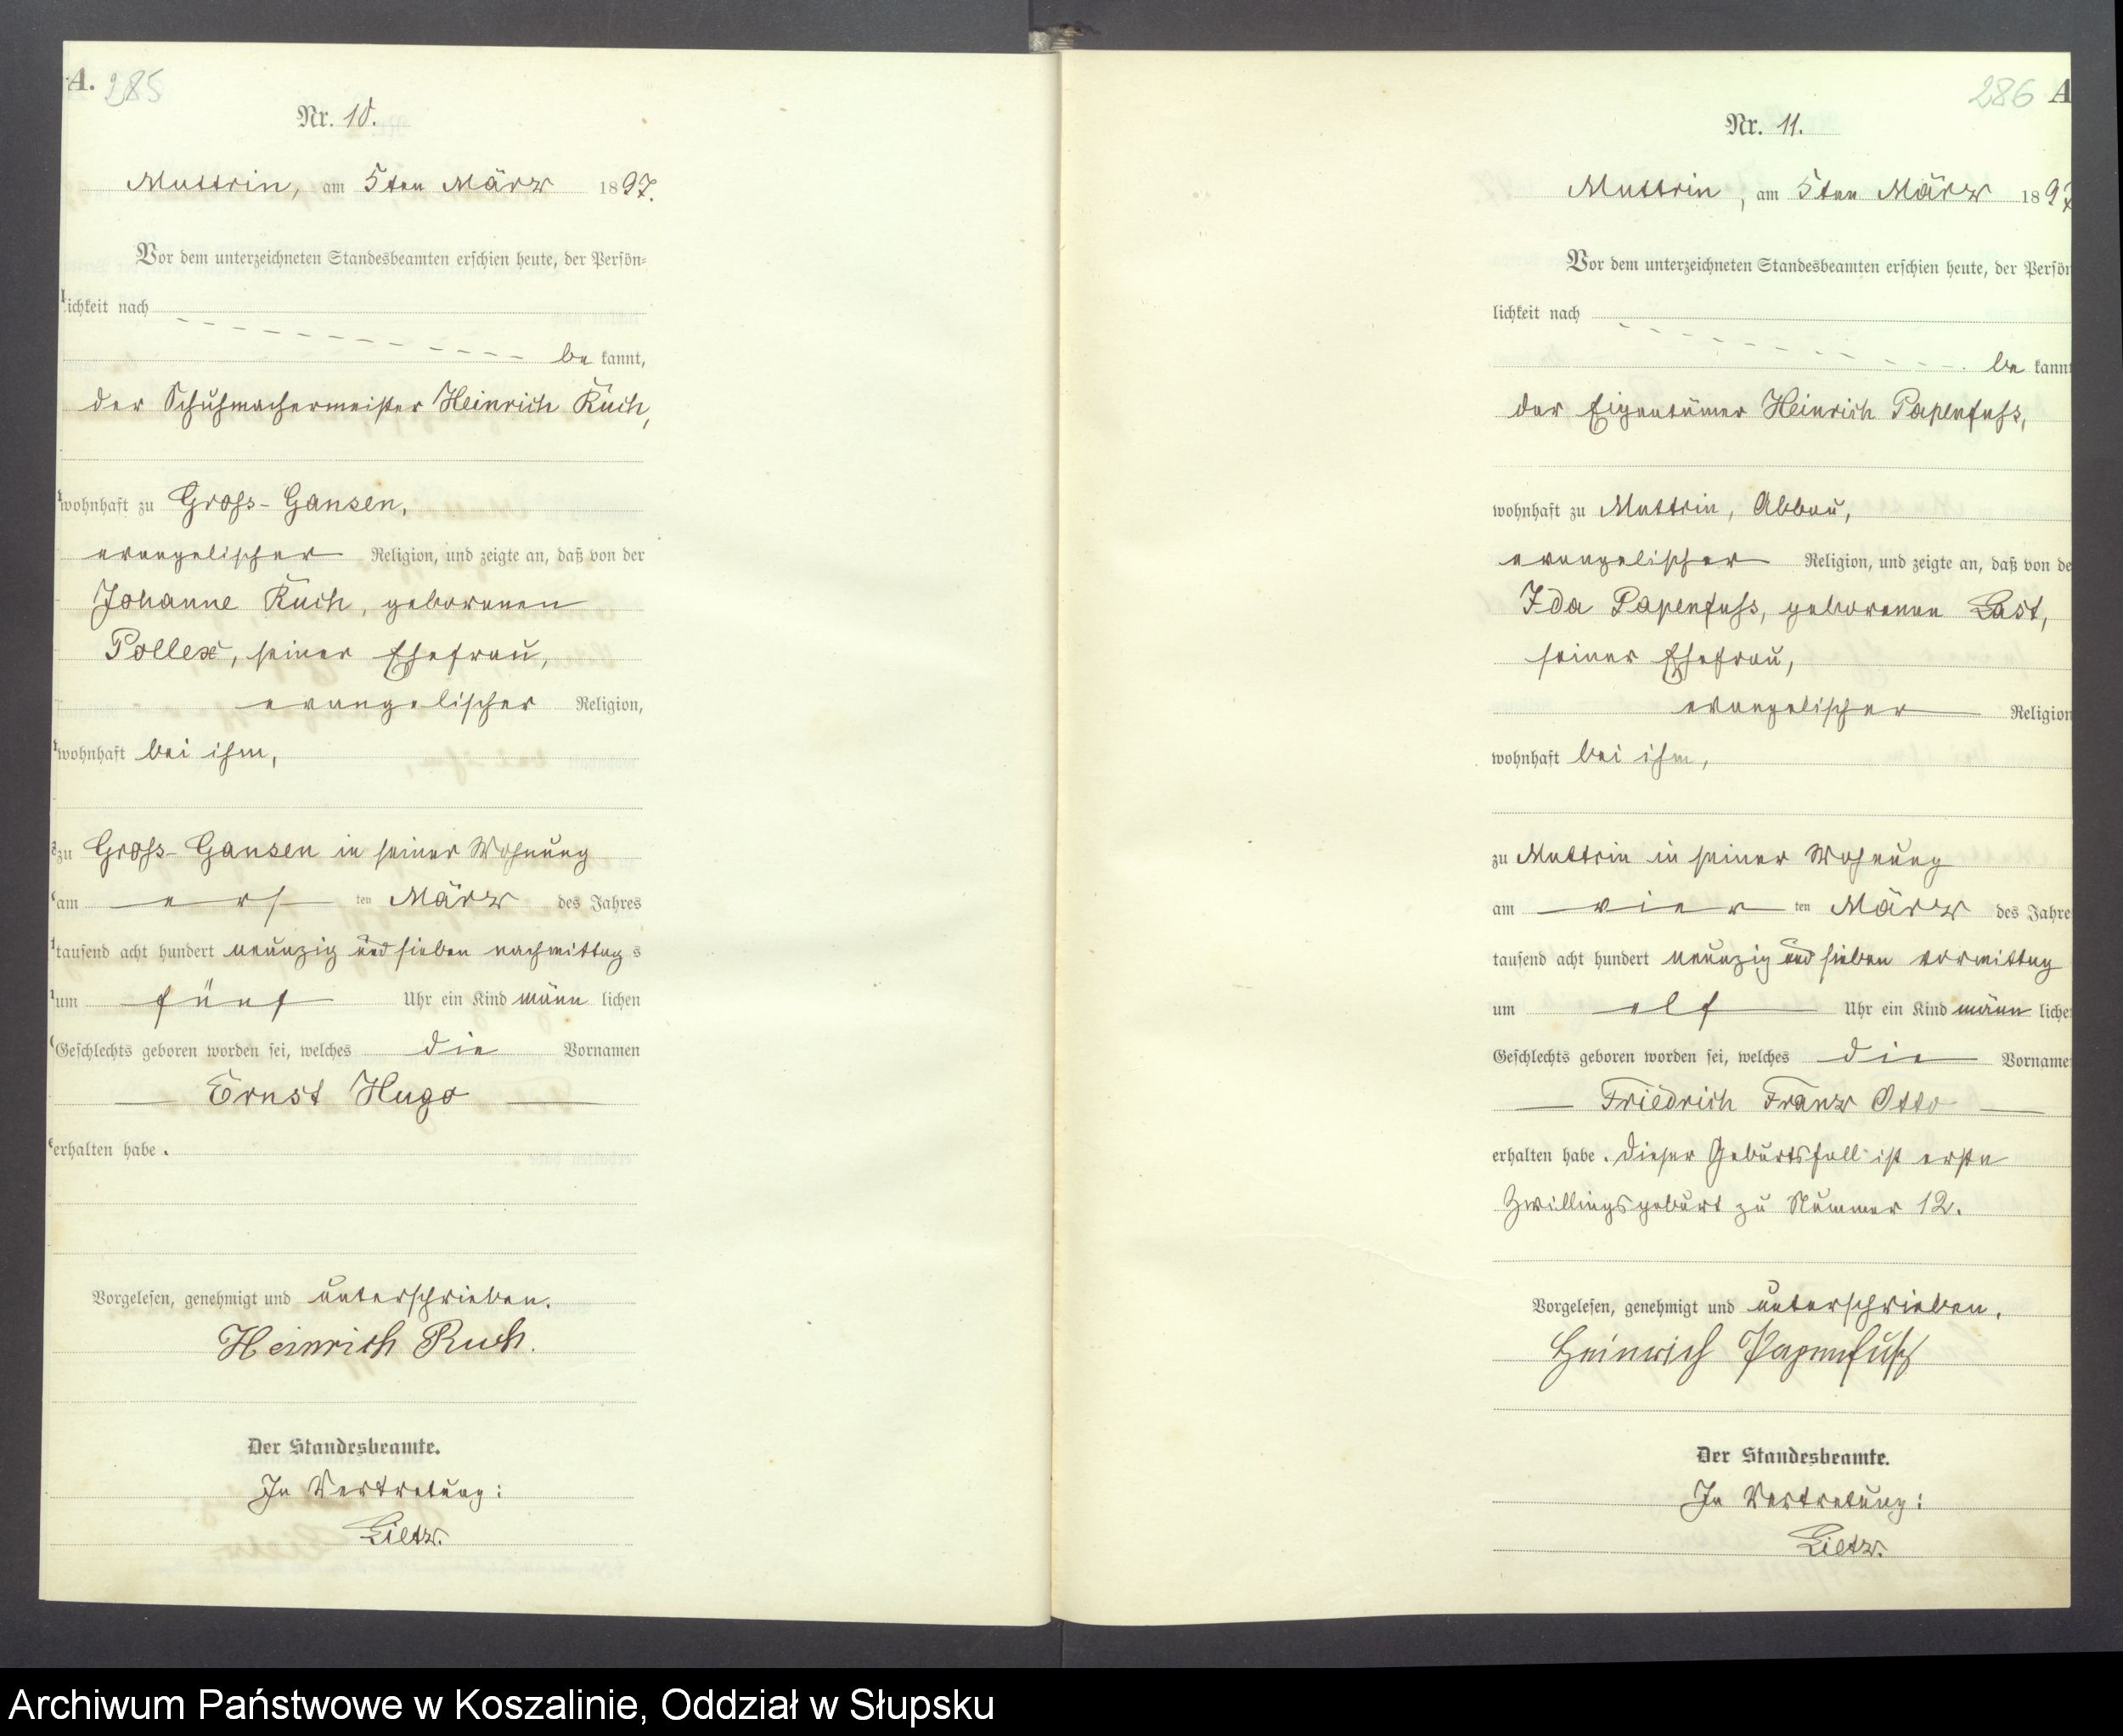 A. 285
Nr. 10.
Muttrin, am 5ten März 1897.
Vor dem unterzeichneten Standesbeamten erschien heute, der Persön-
lichkeit nach
be kannt,
der Schuhmachermeister Heinrich Ruch,
wohnhaft zu Gross-Gansen,
evangelischer Religion, und zeigte an, daß von der
Johanne Ruch, geborenen
Pollex, seiner Ehefrau,
evangelischer Religion,
wohnhaft bei ihm,
zu Gross-Gansen in seiner Wohnung
am ers ten März des Jahres
tausend acht hundert neunzig und sieben nachmittag s
um fünf Uhr ein Kind männ lichen
Geschlechts geboren worden sei, welches die Vornamen
Ernst Hugo
erhalten habe.
Vorgelesen, genehmigt und unterschrieben.
Heinrich Ruch.
Der Standesbeamte.
In Vertretung:
Lietz.
286 A
Nr. 11.
Muttrin, am 5ten März 1897
Vor dem unterzeichneten Standesbeamten erschien heute, der Persön
lichkeit nach
be kannt
der Eigentümer Heinrich Papenfuss,
wohnhaft zu Muttrin, Abbau,
evangelischer Religion, und zeigte an, daß von de
Ida Papenfuss, geborenen Last,
seiner Ehefrau,
evangelischer Religion
wohnhaft bei ihm,
zu Muttrin in seiner Wohnung
am vier ten März des Jahre
tausend acht hundert neunzig und sieben vormittag
um elf Uhr ein Kind männ liche
Geschlechts geboren worden sei, welches die Vorname
Friedrich Franz Otto
erhalten habe. Dieser Geburtsfall ist erste
Zwillingsgeburt zu Nummer 12.
Vorgelesen, genehmigt und unterschrieben.
Heinrich Papenfuß
Der Standesbeamte.
In Vertretung:
Lietz.
Archiwum Państwowe w Koszalinie, Oddział w Słupsku